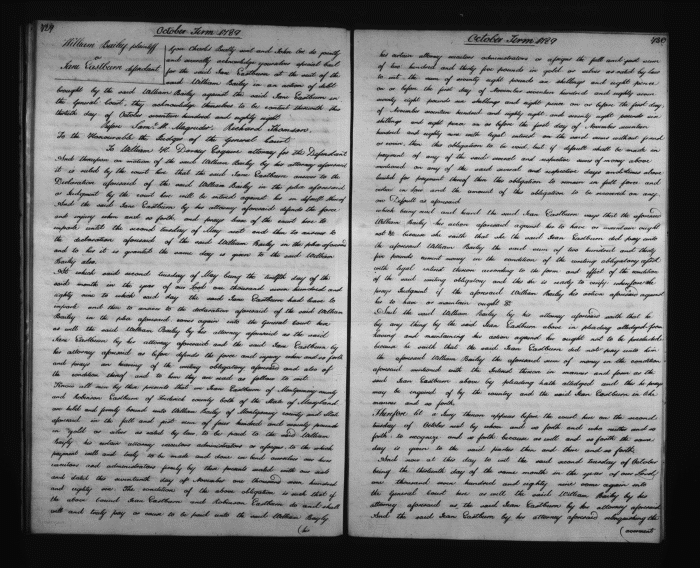 424
October Term 1789
William Baily plaintiff
vs
Jean Eastburn defendant
Upon Charles Beatty and John Coe do jointly
and severally acknowledge themselves special bail
for the said Jean Eastburn at the suit of the
said William Baily in an action of debt
brought by the said William Baily against the said Jean Eastburn in
the General Court, they acknowledge themselves to be content therewith this
thirtieth day of October seventeen hundred and eighty eight
Before Sam. W. Magruder, Richard Thompson,
To the Honourable the Judges of the General Court
To William H. Dorsey Esquire attorney for the Defendant
And thereupon on motion of the said William Baily by his attorney aforesaid
it is ruled by the court here that the said Jean Eastburn answer to the
Declaration aforesaid of the said William Baily in the plea aforesaid
or Judgment by the court here will be entered against her in default thereof
And the said Jean Eastburn by her attorney aforesaid defends the force
and injury when and so forth and prays leave of the court here to
imparle until the second tuesday of May next and then to answer to
the declaration aforesaid of the said William Baily in the plea aforesaid
and to her it is granted the same day is given to the said William
Baily also
At which said second tuesday of May being the twelfth day of the
said month in the year of our Lord one thousand seven hundred and
eighty nine to which said day the said Jean Eastburn had leave to
imparle and then to answer to the declaration aforesaid of the said William
Baily in the plea aforesaid comes again into the General Court here
as well the said William Baily by his attorney aforesaid as the said
Jean Eastburn by her attorney aforesaid and the said Jean Eastburn by
her attorney aforesaid as before defends the force and injury when and so forth
and prays an hearing of the writing obligatory aforesaid and also of
the condition thereof and to her they are read as follows to wit
Know all men by these presents that we Jean Eastburn of Montgomery county
and Robinson Eastburn of Frederick county both of the State of Maryland
are held and firmly bound unto William Baily of Montgomery county and State
aforesaid in the full and just sum of four hundred and seventy pounds
in gold or silver as rated by law to be paid to the said William
Baily his certain attorney executors administrators or assigns to the which
payment well and truly to be made and done we bind ourselves our heirs
executors and administrators firmly by these presents sealed with our seals
and dated this seventeenth day of November one thousand seven hundred
and eighty six The condition of the above obligation is such that if
the above bound Jean Eastburn and Robinson Eastburn do and shall
well and truly pay or cause to be paid unto the said William Baily
(his
425
October Term 1789
his certain attorney executors administrators or assigns the full and just sum
of two hundred and thirty five pounds in gold or silver as rated by law
to wit the sum of seventy eight pounds six shillings and eight pence
on or before the first day of November seventeen hundred and eighty seven
seventy eight pounds six shillings and eight pence on or before the first day
of November seventeen hundred and eighty eight and seventy eight pounds six
shillings and eight pence on or before the first day of November seventeen
hundred and eighty nine with legal interest on the said sums without fraud
or covin, then this obligation to be void but if default shall be made in
payment of any of the said annual and respective sums of money above
limited for payment thereof then this obligation to remain in full force and
virtue in law and the amount of this obligation to be recovered on any
one Default as aforesaid
which being read and heard the said Jean Eastburn says that the aforesaid
William Baily his action aforesaid against her to have or maintain ought
not &c because she saith that she the said Jean Eastburn did pay unto
the aforesaid William Baily the said sum of two hundred and thirty
five pounds current money in the condition of the writing obligatory afsd
with legal interest thereon according to the form and effect of the condition
of the said writing obligatory and this she is ready to verify wherefore she
prays Judgment if the aforesaid William Baily his action aforesaid against
her to have or maintain ought &c
And the said William Baily by his attorney aforesaid saith that he
by any thing by the said Jean Eastburn above in pleading alledged from
having and maintaining his action against her ought not to be precluded
because he saith that the said Jean Eastburn did not pay unto him
the aforesaid William Baily the aforesaid sum of money in the condition
aforesaid mentioned with the Interest thereon in manner and form as the
said Jean Eastburn above by pleading hath alledged and this he prays
may be enquired of by the country and the said Jean Eastburn in like
manner and so forth
Therefore let a Jury thereon appear before the court here on the second
tuesday of October next by whom and so forth and who neither and so
forth to recognize and so forth because as well and so forth the same
day is given to the said parties then and there and so forth,
And now at this day to wit the said second tuesday of October
being the thirteenth day of the same month in the year of our Lord
one thousand seven hundred and eighty nine come again into
the General Court here as well the said William Baily by his
attorney aforesaid as the said Jean Eastburn by her attorney aforesaid
And the said Jean Eastburn by her attorney aforesaid relinquishing the
(averment